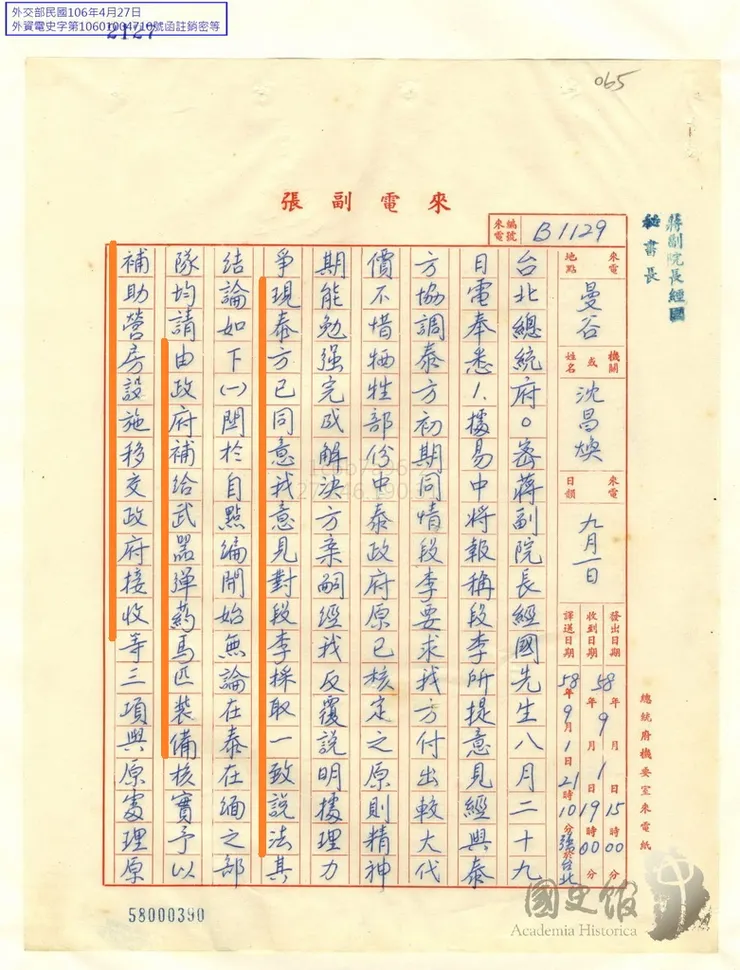 外交部民國106年4月27日
外資電史字第10601004710號函註銷密等
2127
065
張副電來
來電編號 B1129
蔣副院長經國
秘書長
來電地點 曼谷
機關或姓名 沈昌煥
來電日韻 九月一日
發出日期 58年9月1日15時00分
收到日期 58年9月1日19時00分
譯送日期 58年9月1日21時10分 於台北
總統府機要室來電紙
台北總統府。密蔣副院長經國先生八月二十九
日電奉悉1.據易中將報稱段李所提意見經與泰
方協調泰方初期同情段李要求我方付出較大代
價不惜犧牲部份中泰政府原已核定之原則精神
期能勉强完成解決方案嗣經我反覆說明據理力
爭現泰方已同意我意見對段李採取一致說法其
結論如下(一)關於自點編開始無論在泰在緬之部
隊均請由政府補給武器彈葯馬匹裝備核實予以
補助營房設施移交政府接收等三項與原處理原
58000390
國史館
Academia Historica